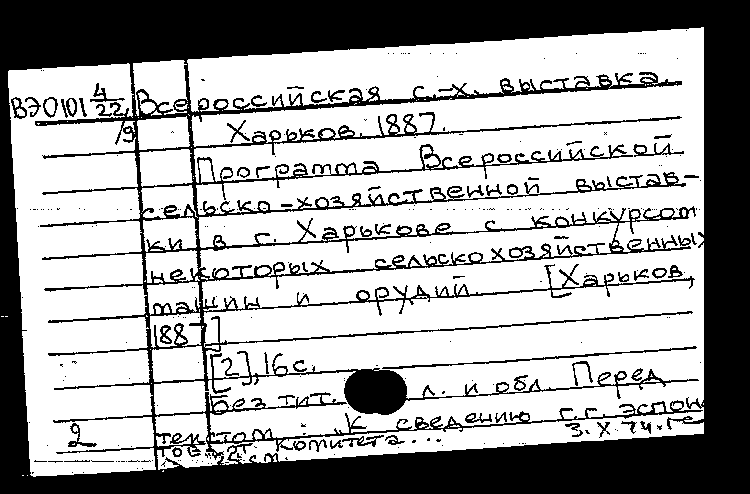 ВЭ0101 4/22, Всероссийская с.-х. выставка.
/9 Харьков. 1887.
Программа Всероссийской
сельско-хозяйственной выстав-
ки в г. Харькове с конкурсом
некоторых сельскохозяйственных
машин и орудий. [Харьков,
1887].
[2], 16 с.
Без тит. л. и обл. Перед
2 текстом: "К сведению г.г. экспон
комитета...
22 см. 3.X.74.